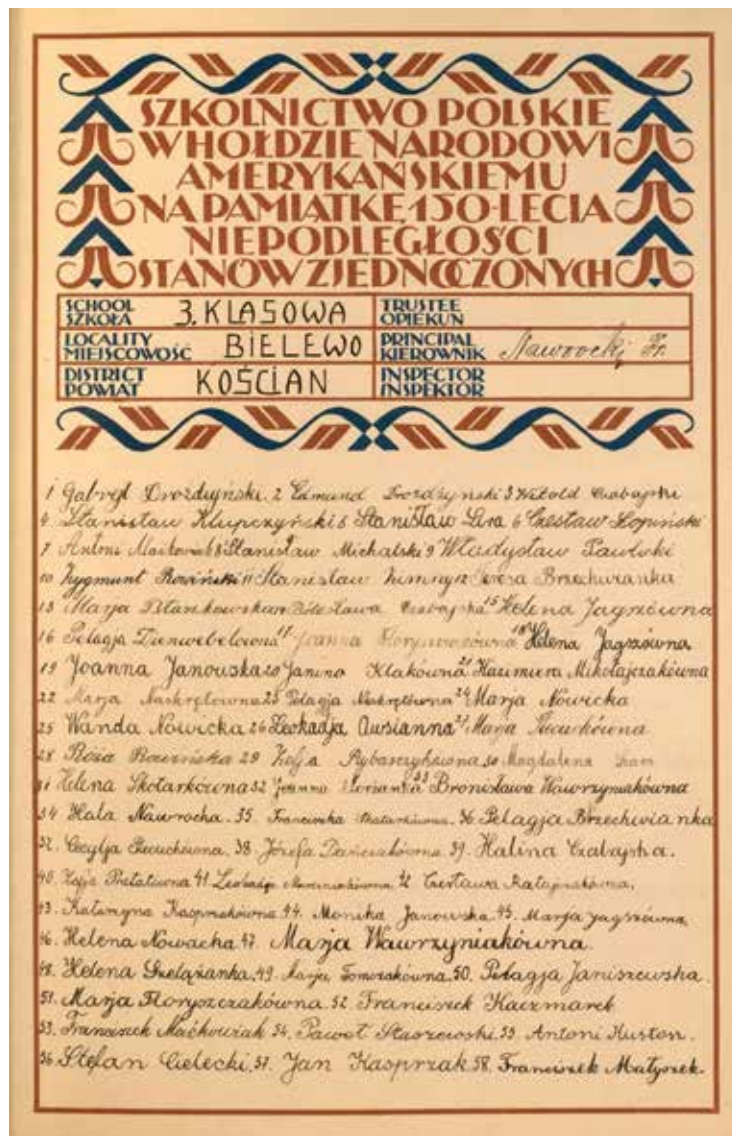 SZKOLNICTWO POLSKIE
W HOŁDZIE NARODOWI
AMERYKAŃSKIEMU
NA PAMIĄTKĘ 150-LECIA
NIEPODLEGŁOŚCI
STANÓW ZJEDNOCZONYCH
SCHOOL SZKOŁA 3. KLASOWA TRUSTEE OPIEKUN
LOCALITY MIEJSCOWOŚĆ BIELEWO PRINCIPAL KIEROWNIK Nawrocki Fr.
DISTRICT POWIAT KOŚCIAN INSPECTOR INSPEKTOR
1 Gabryel Drożdżyński. 2 Edmund Drożdżyński 3 Witold Czabajski
4. Stanisław Klupczyński 5 Stanisław Lira 6 Czesław Łopiński
7 Antoni Maćkowiak 8 Stanisław Michalski 9 Władysław Pawlicki
10 Zygmunt Roziński 11 Stanisław Zimny 12 Teresa Brzechwianka
13 Marja Błaszkowska 14 Bolesława Czabajska 15 Helena Jagszówna
16 Pelagja 17 Joanna 18 Helena Jagszówna
19 Joanna Janowska 20 Janina Klakówna 21 Kazimiera Mikołajczakówna
22 Marja Naskrętówna 23 Pelagja Naskrętówna 24 Marja Nowicka
25 Wanda Nowicka 26 Leokadja Owsianna 27 Marja
28 Róża 29 Zofja Rybarczykówna 30 Magdalena
31 Helena Skotarkówna 32 Joanna 33 Bronisława Wawrzyniakówna
34 Hala Nawrocka. 35. Franciszka Skotarkówna. 36 Pelagja Brzechwianka
37. Cecylja 38. Józefa Dańczakówna 39. Halina Czabajska.
40. Zofja 41 Leokadja 42 Czesława Ratajczakówna.
43. Katarzyna Kasprzakówna 44. Monika Janowska 45. Marja Jagszówna
46. Helena Nowacka 47. Marja Wawrzyniakówna.
48. Helena Szelążanka. 49. Marja Tomczakówna. 50. Pelagja Janiszewska.
51. Marja Floryszczakówna. 52. Franciszek Kaczmarek
53. Franciszek Maćkowiak 54. Paweł Staszewski 55. Antoni Kuston.
56 Stefan Cielecki. 57. Jan Kasprzak. 58. Franciszek Małyszek.